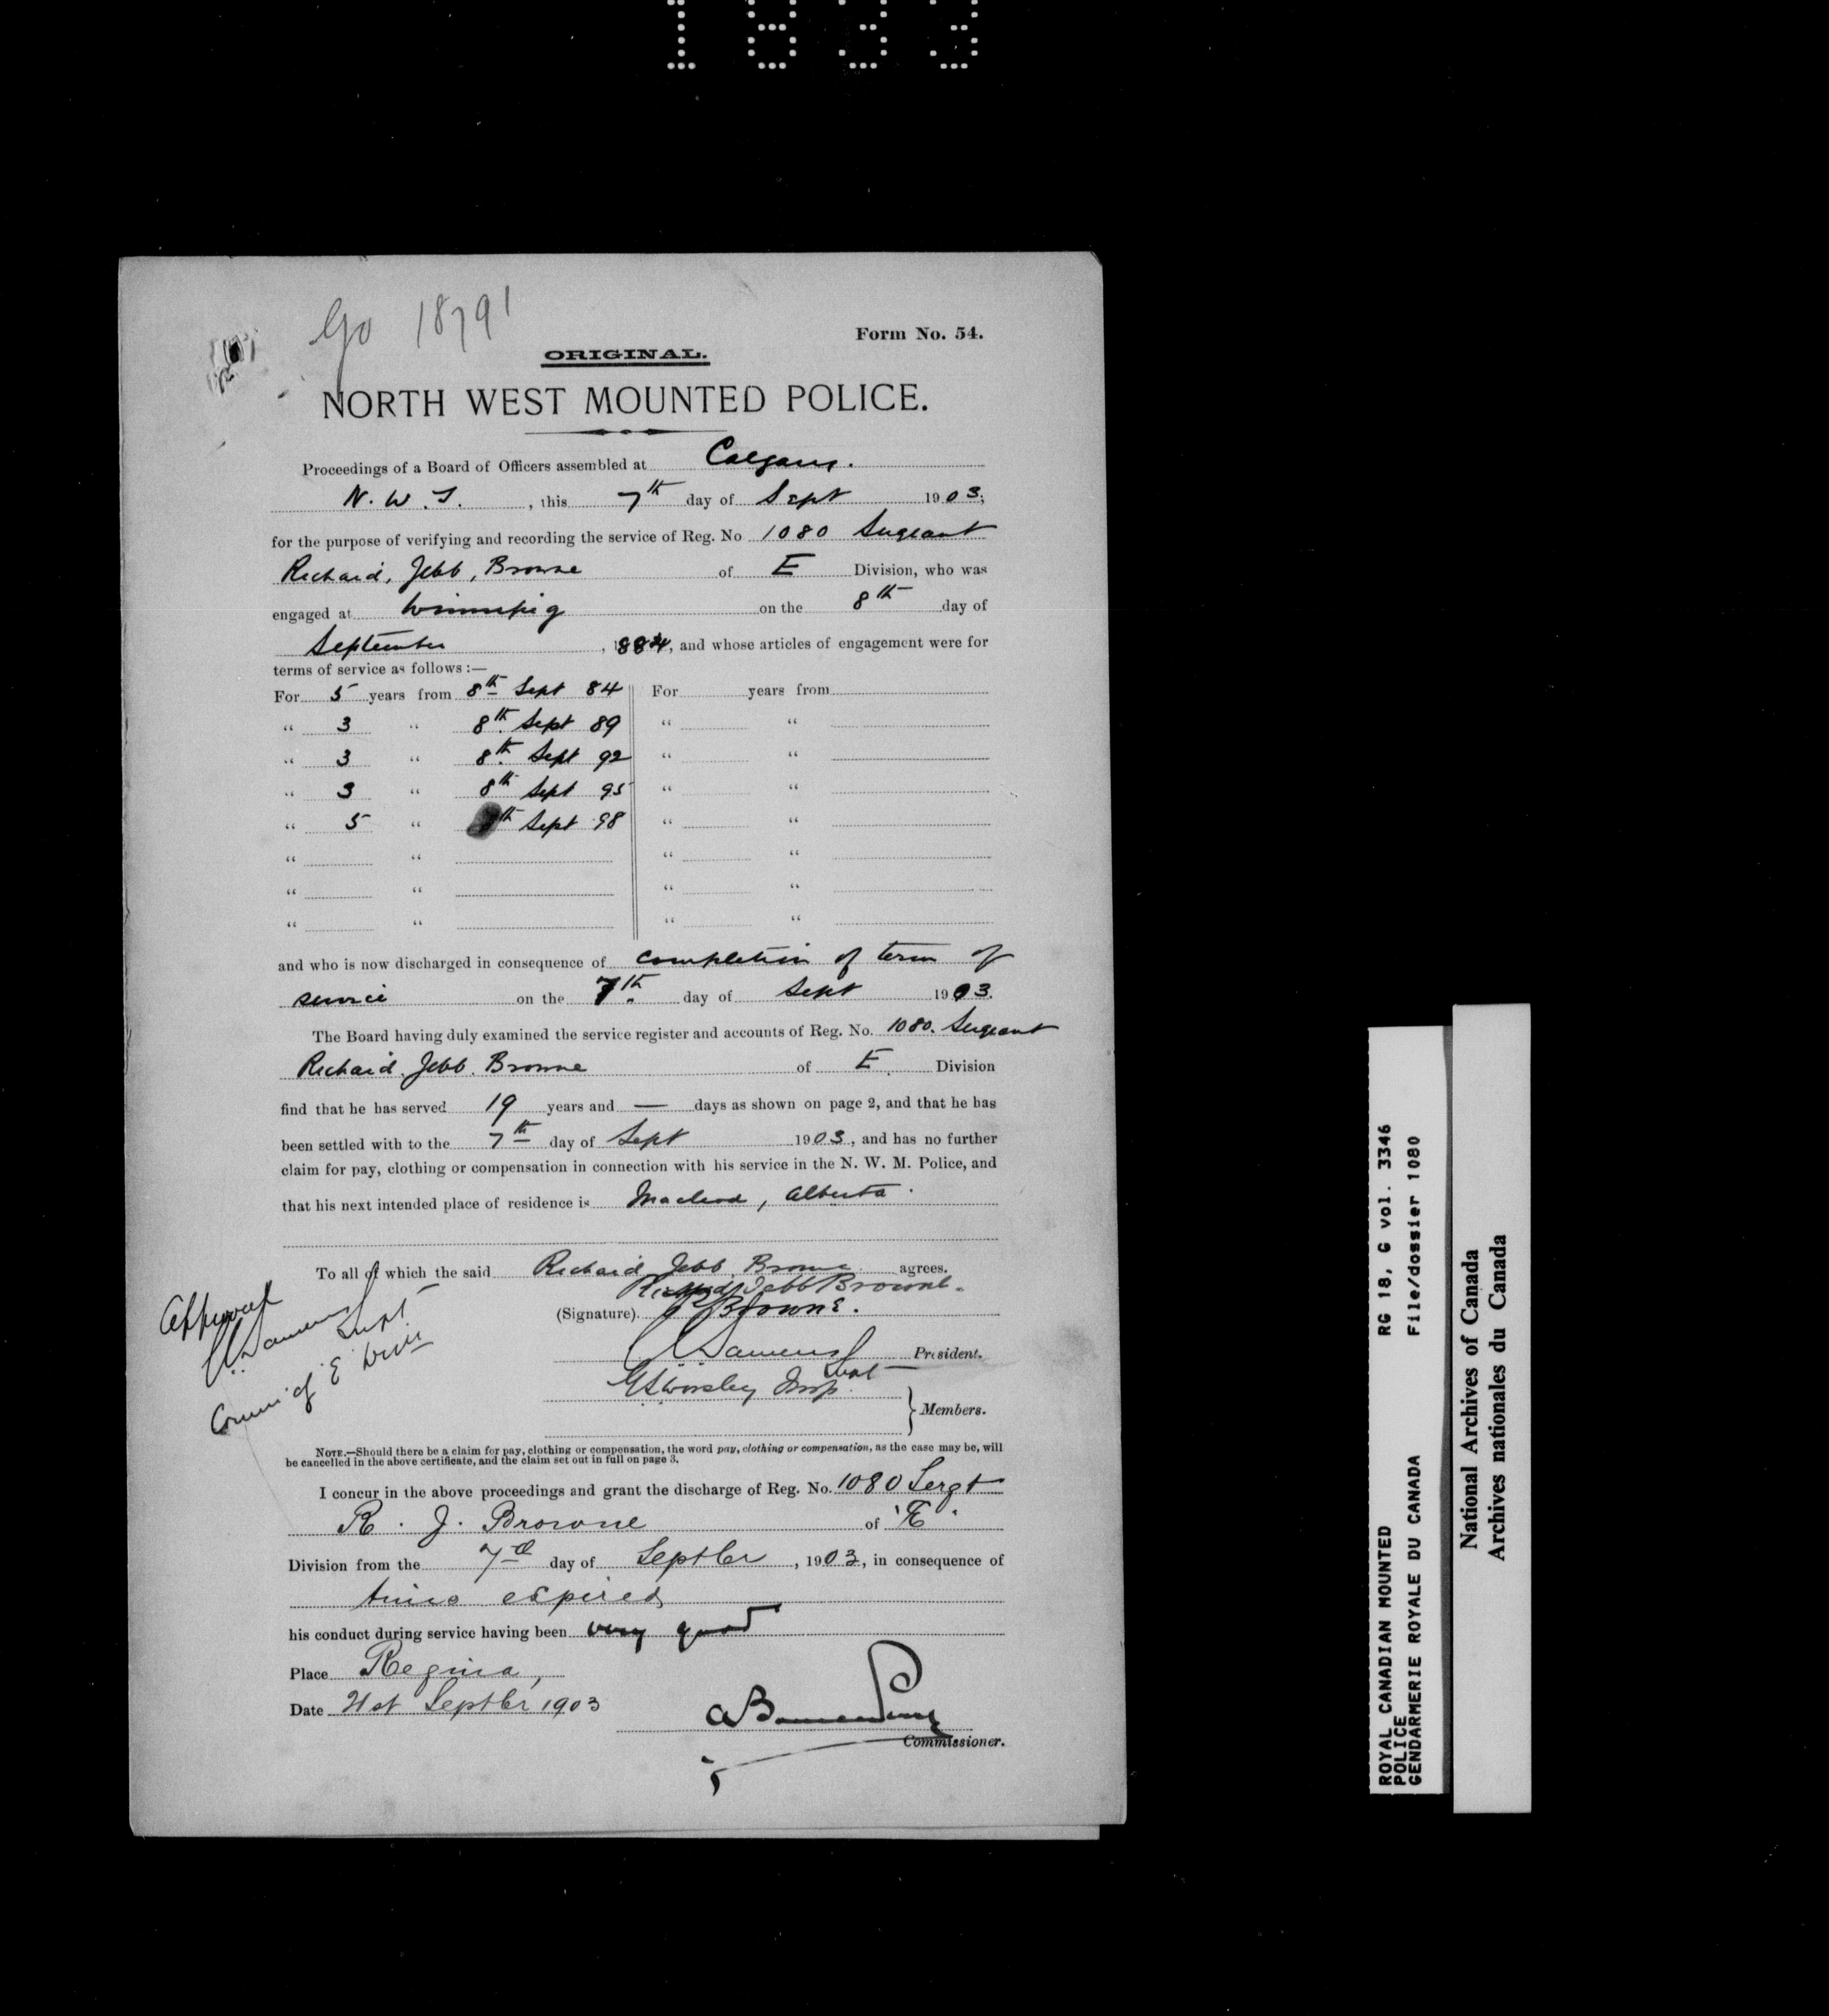 1833
GO 18791
Form No. 54.
ORIGINAL.
NORTH WEST MOUNTED POLICE.
Proceedings of a Board of Officers assembled at Calgary.
N. W. T. , this 7th day of Sept 1903;
for the purpose of verifying and recording the service of Reg. No 1080 Sergeant
Richard, Jebb, Browne of E Division, who was
engaged at Winnipeg on the 8th day of
September , 1884, and whose articles of engagement were for
terms of service as follows :—
For 5 years from 8th Sept 84 For years from
" 3 " 8th Sept 89 " "
" 3 " 8th Sept 92 " "
" 3 " 8th Sept 95 " "
" 5 " 8th Sept 98 " "
" " " "
" " " "
" " " "
and who is now discharged in consequence of completion of term of
service on the 7th day of Sept 1903.
The Board having duly examined the service register and accounts of Reg. No. 1080. Sergeant
Richard. Jebb. Browne of E. Division
find that he has served 19 years and — days as shown on page 2, and that he has
been settled with to the 7th day of Sept 1903, and has no further
claim for pay, clothing or compensation in connection with his service in the N. W. M. Police, and
that his next intended place of residence is Macleod, Alberta.
To all of which the said Richard Jebb. Browne agrees.
Richard Jebb Browne.
(Signature). R J Browne.
Approved
Supt
Comm'g 'E' Divn
President.
Supt
G S Worsley Insp.
Members.
NOTE.—Should there be a claim for pay, clothing or compensation, the word pay, clothing or compensation, as the case may be, will
be cancelled in the above certificate, and the claim set out in full on page 3.
I concur in the above proceedings and grant the discharge of Reg. No. 1080 Sergt
R. J. Browne of 'E'
Division from the 7th day of Septbr , 1903, in consequence of
time expired
his conduct during service having been very good
Place Regina,
Date 21st Septbr 1903
A Bowen Perry
Commissioner.
ROYAL CANADIAN MOUNTED RG 18, G vol. 3346
POLICE
GENDARMERIE ROYALE DU CANADA File/dossier 1080
National Archives of Canada
Archives nationales du Canada